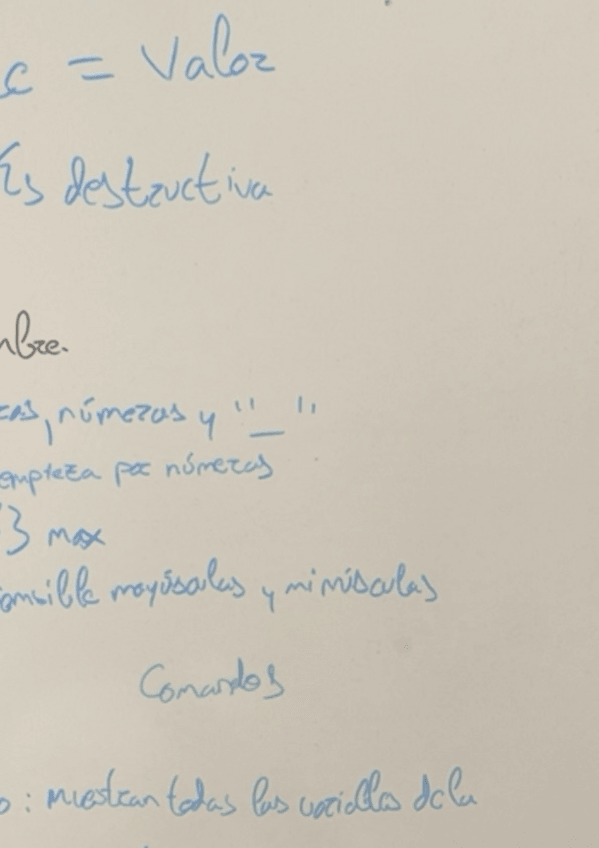 = Valor
Es destructiva
números y "_"
empieza por números
3 max
mayúsculas y minúsculas
Comandos
: muestran todas las variables de la